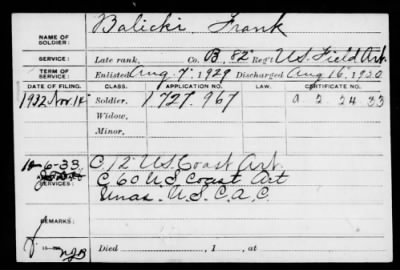 NAME OF SOLDIER: Balicki, Frank
SERVICE: Late rank, Co. B, 82" Reg't U.S. Field Art.
TERM OF SERVICE: Enlisted Aug. 7", 1929 Discharged Aug 16", 1920
DATE OF FILING. CLASS. APPLICATION NO. LAW. CERTIFICATE NO.
1932 Nov. 14" Soldier, 1727.967 a 2 24 33
Widow,
Minor,
10-6-33 C/12" U.S. Coast Art.
SERVICES: C 60 U.S Coast Art
Unas. U.S. C.A.C.
REMARKS:
NJB Died , 1 , at